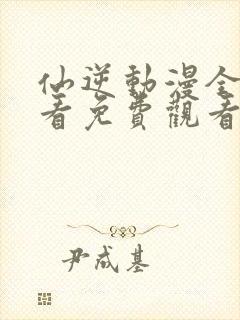 仙逆動漫全
看免費觀看
尹成基